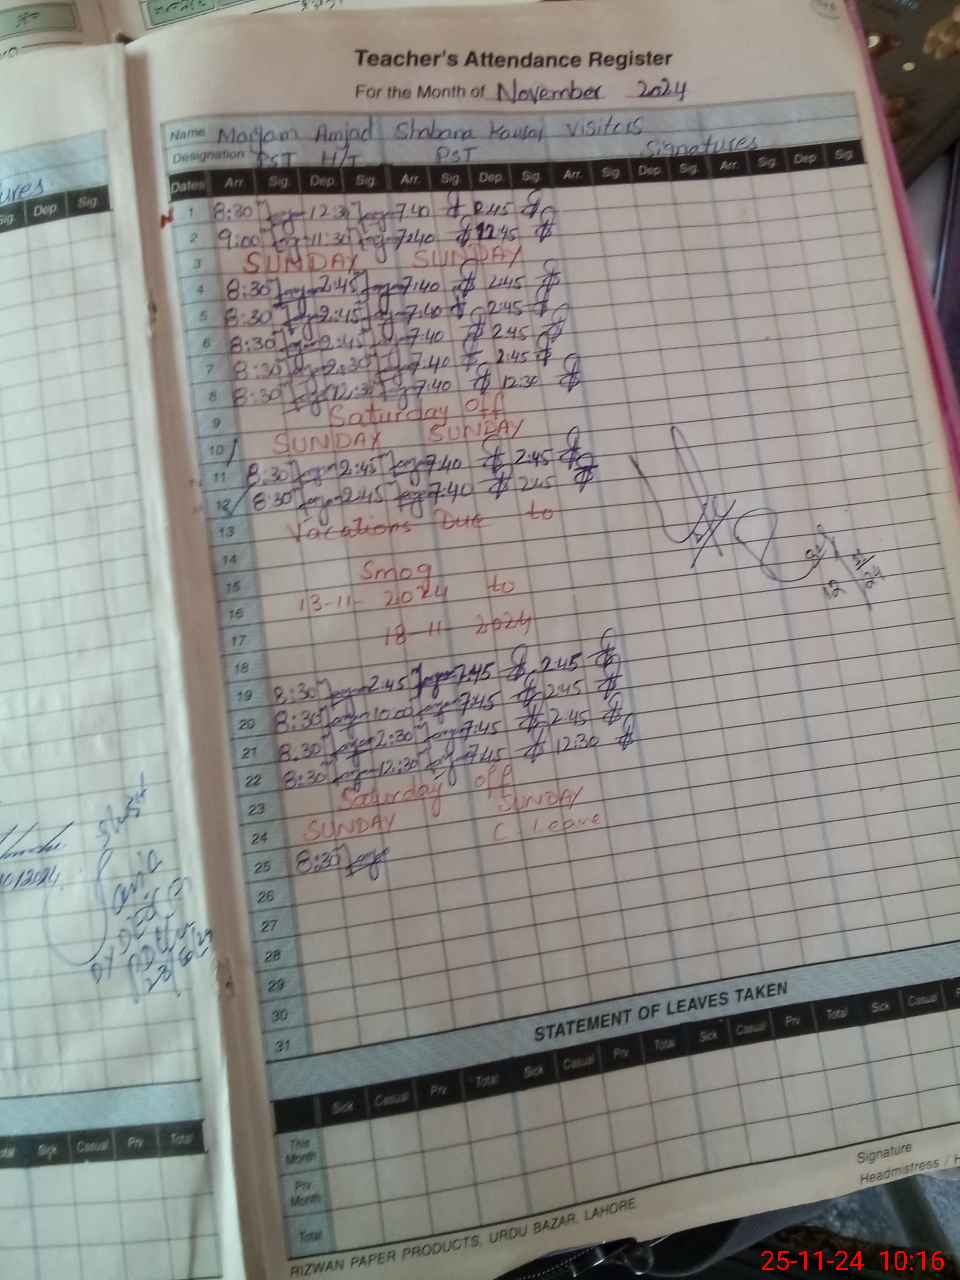 Teacher's Attendance Register
For the Month of November 2024
Name Maryam Amjad Shabana Kausar Visitors
Designation PST H/T PST Signatures
Dates Arr. Sig. Dep. Sig. Arr. Sig. Dep. Sig. Arr. Sig. Dep. Sig. Arr. Sig. Dep. Sig.
1 8:30 12:30 7:40
2 9:00 11:30 7:40 12:45
3 SUNDAY SUNDAY
4 8:30 2:45 7:40 2:45
5 8:30 2:45 7:40 2:45
6 8:30 2:45 7:40 2:45
7 8:30 2:30 7:40 2:45
8 8:30 12:30 7:40 12:30
9 Saturday off
10 SUNDAY SUNDAY
11 8:30 2:45 7:40 2:45
12 8:30 2:45 7:40 2:45
13 Vacations Due to
14
15 Smog
16 13-11-2024 to
17 18-11-2024
18
19 8:30 2:45 7:45 2:45
20 8:30 10:00 7:45 2:45
21 8:30 2:30 7:45 2:45
22 8:30 12:30 7:45 12:30
23 Saturday off
24 SUNDAY SUNDAY
25 8:30 C Leave
26
27
28
29
30
31
STATEMENT OF LEAVES TAKEN
Sick Casual Prv. Total Sick Casual Prv. Total Sick Casual Prv. Total Sick Casual
This Month
Prv. Month
Total
Signature
Headmistress / H
RIZWAN PAPER PRODUCTS, URDU BAZAR, LAHORE
ures
Sig. Dep. Sig.
Sick Casual Prv. Total
25-11-24 10:16